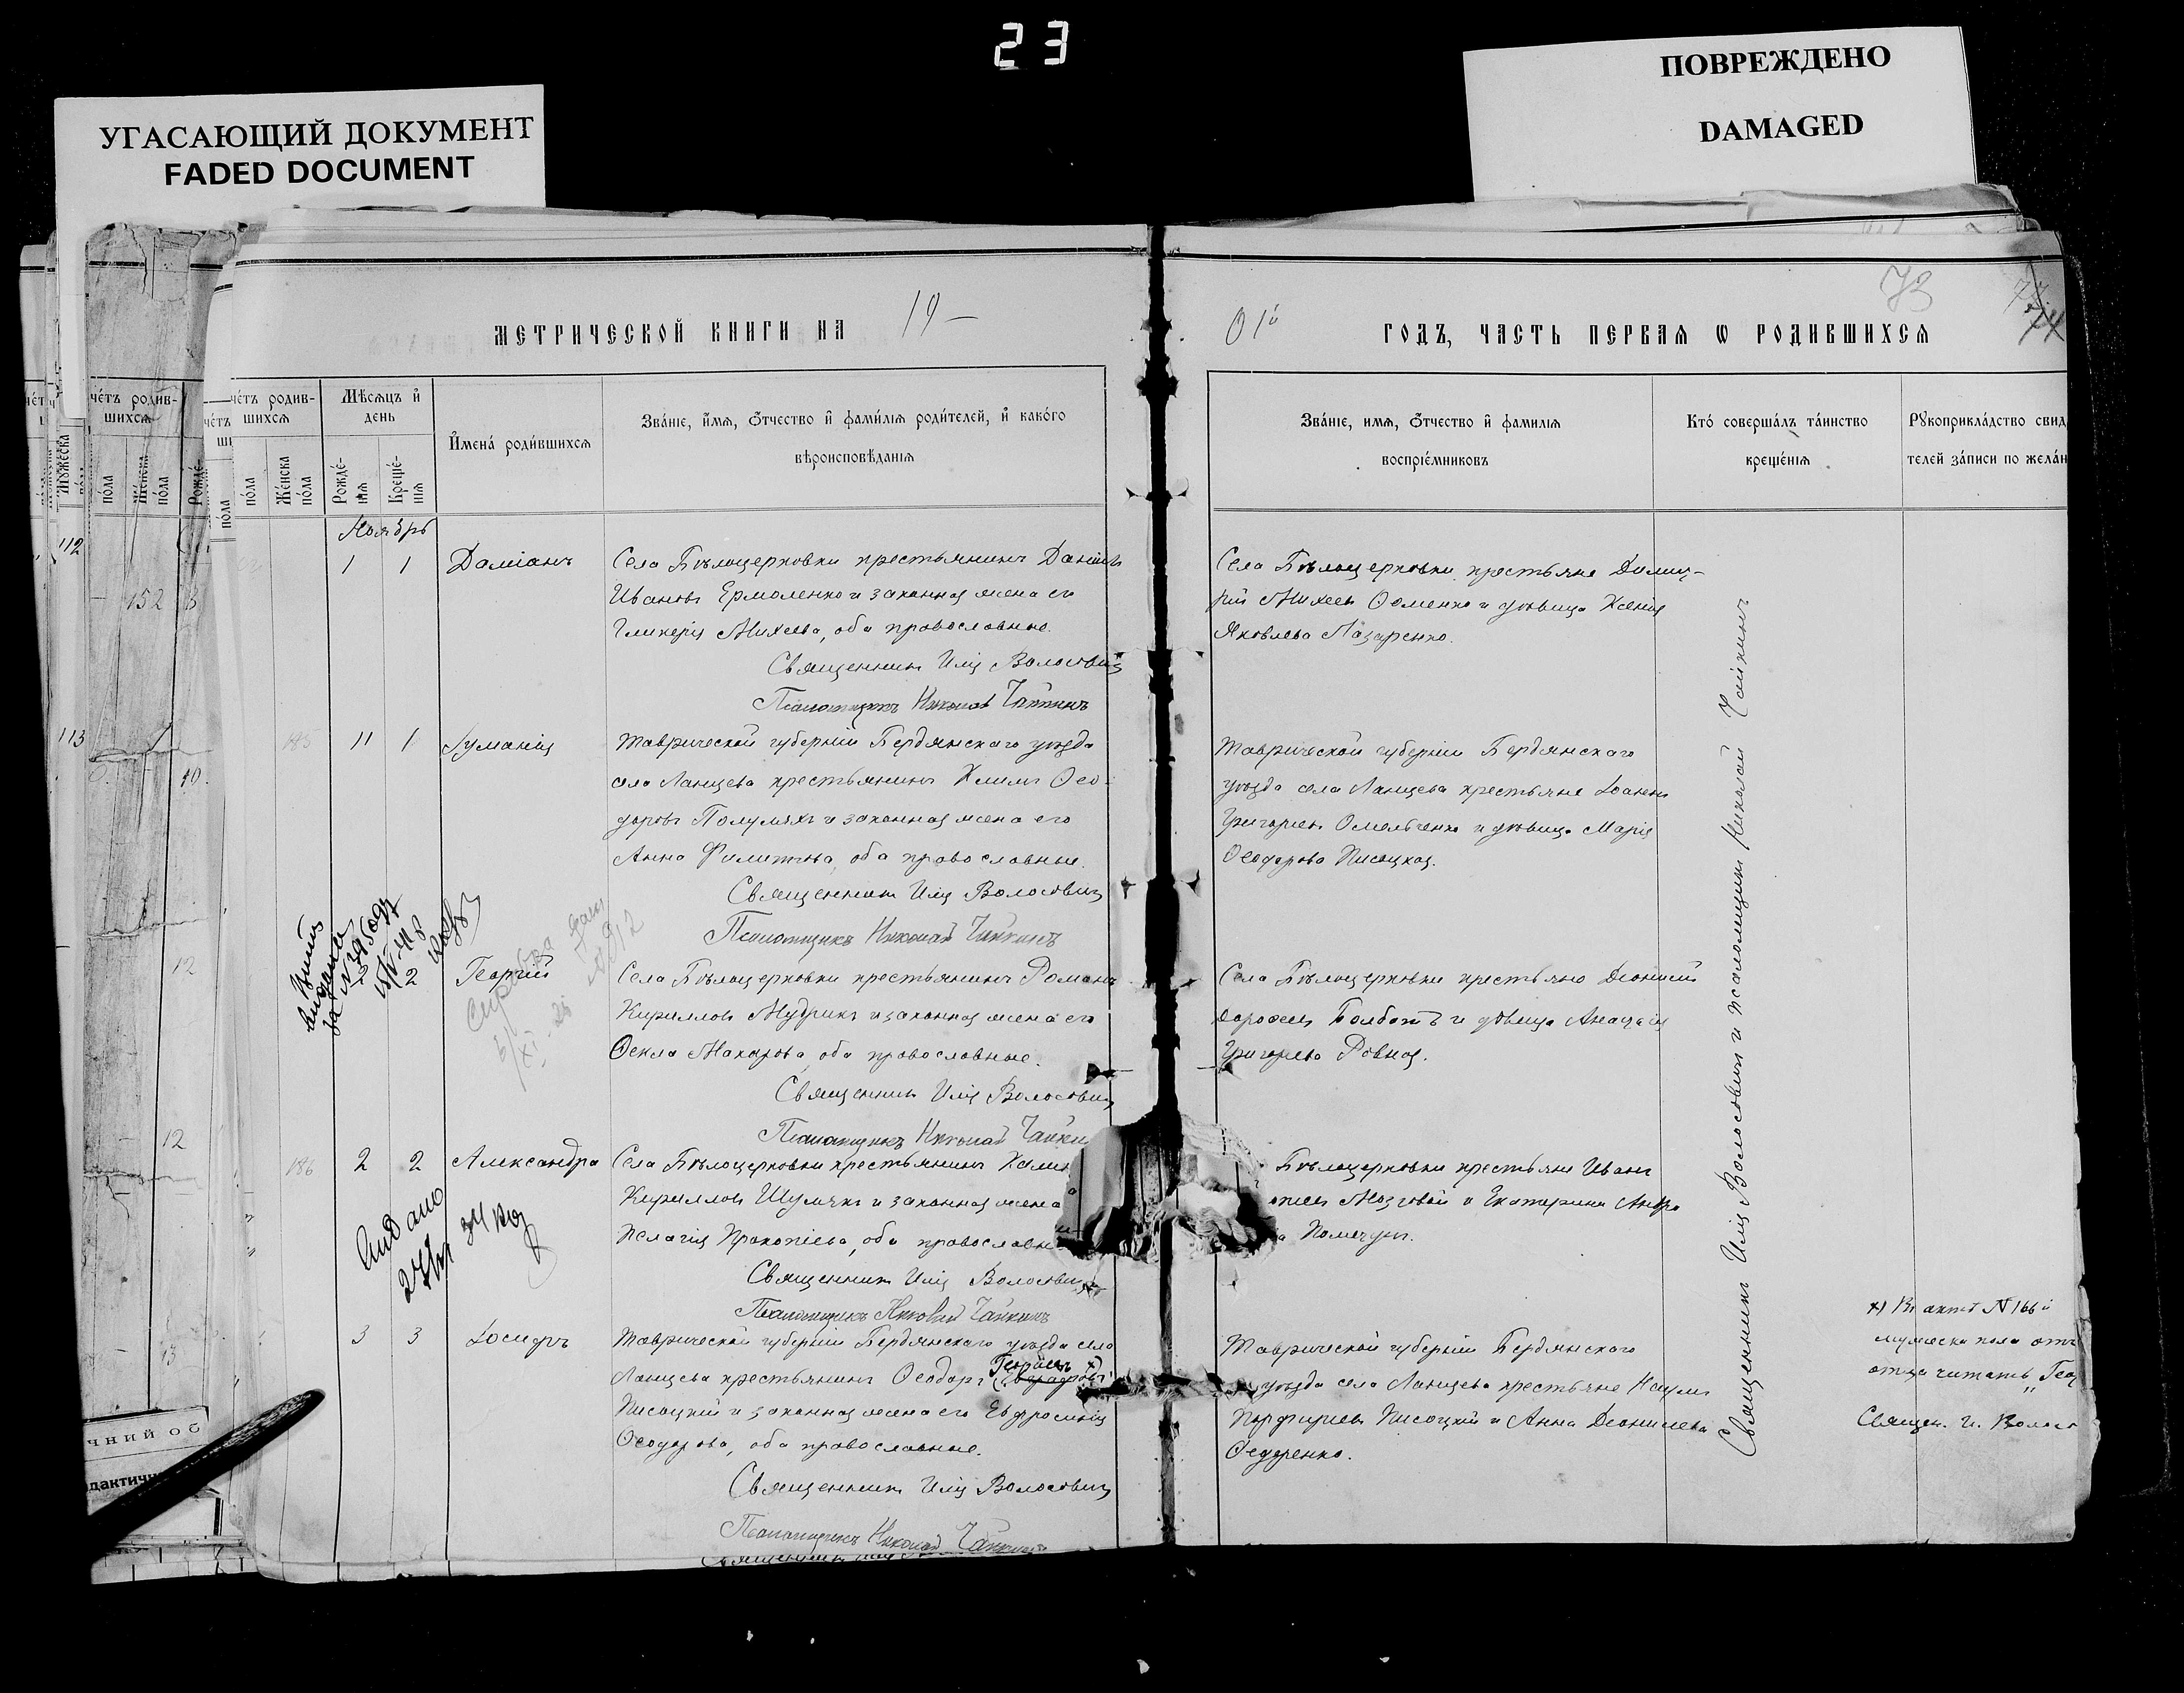 23
УГАСАЮЩИЙ ДОКУМЕНТ
FADED DOCUMENT
ПОВРЕЖДЕНО
DAMAGED
73
МЕТРИЧЕСКОЙ КНИГИ НА 19—
01й ГОДЪ, ЧАСТЬ ПЕРВАЯ Ѡ РОДИВШИХСЯ
че́тъ родив-
шихся
по́ла
Же́нска
по́ла
Мѣсяцъ и҆
день
Рожде́-
нія
Креще́-
нія
И҆мена́ роди́вшихся
Зва́ніе, и҆́мя, ѻ҆́тчество и҆ фами́лія роди́телей, и҆ како́го
вѣроисповѣ́данія
Зва́ніе, имя, ѻ҆́тчество и҆ фамилія
воспріе́мниковъ
Кто́ соверша́лъ та́инство
креще́нія
Рꙋкоприкла́дство свид
телей за́писи по жела́н
112
152
113
10
12
12
13
Ноябрь
1 1 Даміанъ
Села Бѣлоцерковки крестьянинъ Даніилъ
Ивановъ Ермоленко и законная жена его
Гликерія Михеева, оба православные.
Священникъ Илія Волосовичъ
Псаломщикъ Николай Чайкинъ
Села Бѣлоцерковки крестьяне Димит-
рій Михеевъ и дѣвица Ксенія
Яковлева Лазаренко.
185 11 1
Таврической губерніи Бердянскаго уѣзда
села Ланцева крестьянинъ Климъ Ѳео-
доровъ Полумякъ и законная жена его
Анна Филиппова, оба православные.
Священникъ Илія Волосовичъ
Псаломщикъ Николай Чайкинъ
Таврической губерніи Бердянскаго
уѣзда села Ланцева крестьяне Іоаннъ
Григорьевъ Омельченко и дѣвица Марія
Ѳеодорова Писоцкая.
2 Георгій
Села Бѣлоцерковки крестьянинъ Романъ
Кирилловъ Мудрикъ и законная жена его
Ѳекла Макарова, оба православные.
Священникъ Илія Волосовичъ
Псаломщикъ Николай Чайки
Села Бѣлоцерковки крестьяне Діонисій
Дороѳеевъ и дѣвица Анастасія
Григорьева Ровная.
186 2 2 Александра
Села Бѣлоцерковки крестьянинъ
Кирилловъ Шумякъ и законная жена
Пелагія Прокопіева, оба православн
Священникъ Илія Волосовичъ
Псаломщикъ Николай Чайкинъ
Бѣлоцерковки крестьяне Иванъ
Мозговой и Екатерина
3 3 Іосифъ
Таврической губерніи Бердянскаго уѣзда села
Георгіевъ х)
Ланцева крестьянинъ Ѳеодоръ
Писоцкій и законная жена его Евфросинія
Ѳеодорова, оба православные.
Священникъ Илія Волосовичъ
Псаломщикъ Николай Чайкинъ
Таврической губерніи Бердянскаго
уѣзда села Ланцева крестьяне Наумъ
Порфирьевъ Писоцкій и Анна Діонисіева
Ѳедоренко.
Священникъ Илія Волосовичъ и псаломщикъ Николай Чайкинъ
х) Въ актѣ № 166й
мужеска пола отч
отца читать „Геор
Священ. И. Волосо